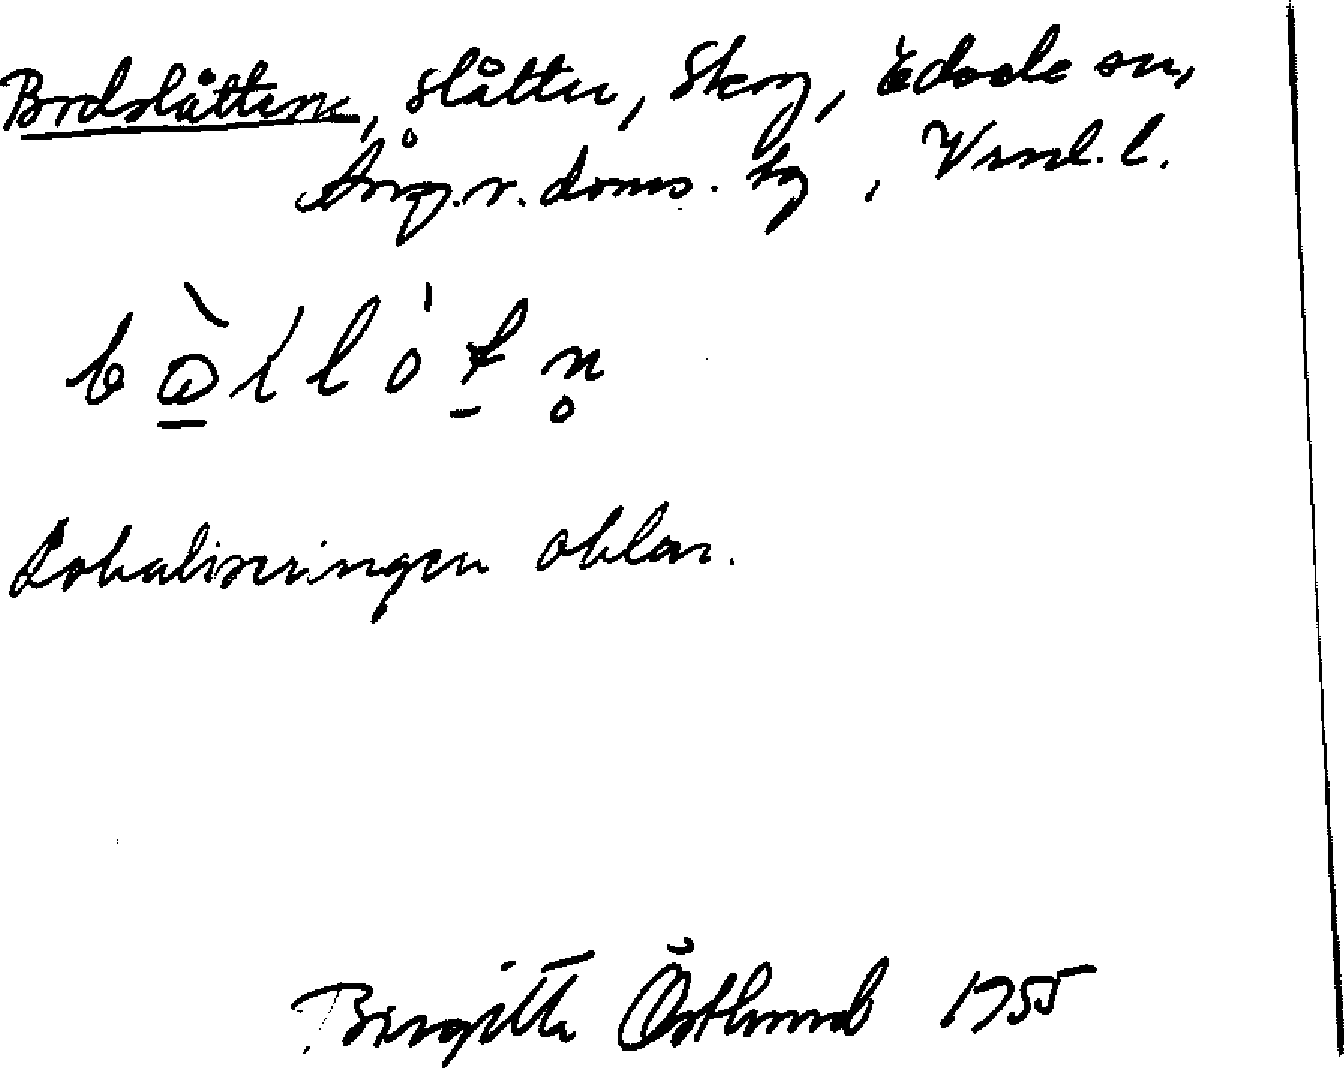 Bodslåttern, slåtter, Skog, Edsele sn,
Ång. v. doms. tg, Vrnl. l.
Lokaliseringen oklar.
Birgitta Östlund 1955